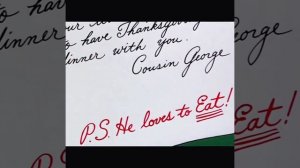 to have Thanksgiving
dinner with you.
Cousin George
P.S. He loves to Eat!